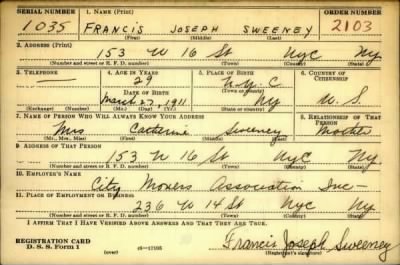 SERIAL NUMBER 1. NAME (Print) ORDER NUMBER
1035 FRANCIS JOSEPH SWEENEY 2103
(First) (Middle) (Last)
2. ADDRESS (Print)
153 W 16 St NYC NY
(Number and street or R. F. D. number) (Town) (County) (State)
3. TELEPHONE 4. AGE IN YEARS 5. PLACE OF BIRTH 6. COUNTRY OF CITIZENSHIP
29 N.Y.C
DATE OF BIRTH (Town or county)
March 27, 1911 NY U.S.
(Exchange) (Number) (Mo.) (Day) (Yr.) (State or country)
7. NAME OF PERSON WHO WILL ALWAYS KNOW YOUR ADDRESS 8. RELATIONSHIP OF THAT PERSON
Mrs Catherine Sweeney Mother
(Mr., Mrs., Miss) (First) (Middle) (Last)
9. ADDRESS OF THAT PERSON
153 W 16 St NYC NY
(Number and street or R. F. D. number) (Town) (County) (State)
10. EMPLOYER'S NAME
City Movers Association Inc-
11. PLACE OF EMPLOYMENT OR BUSINESS
236 W 14 St NYC NY
(Number and street or R. F. D. number) (Town) (County) (State)
I AFFIRM THAT I HAVE VERIFIED ABOVE ANSWERS AND THAT THEY ARE TRUE.
REGISTRATION CARD
D. S. S. Form 1 (over) 16-17105 Francis Joseph Sweeney
(Registrant's signature)